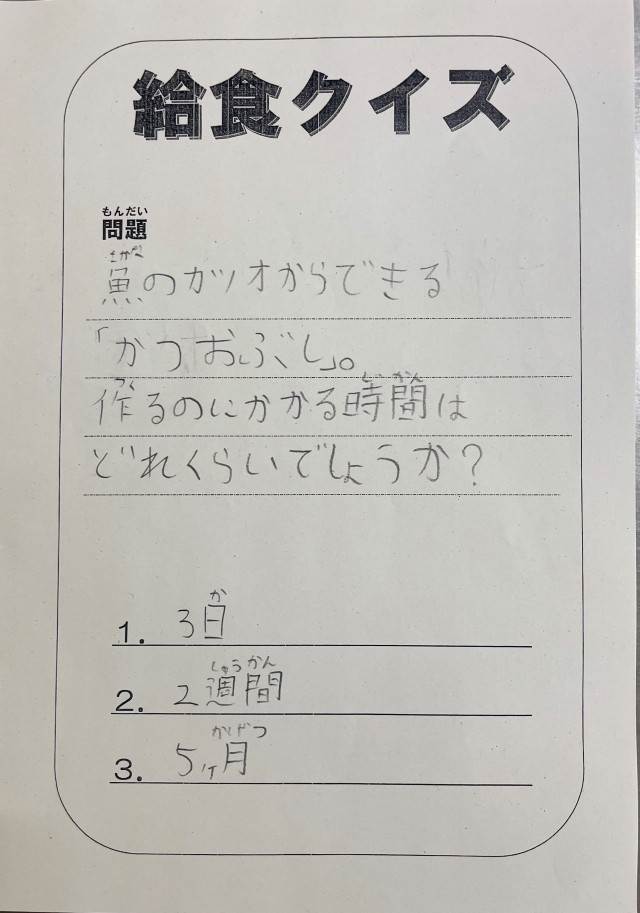 給食クイズ
もんだい
問題
さかな
魚のカツオからできる
「かつおぶし」。
つく じかん
作るのにかかる時間は
どれくらいでしょうか？
か
1. 3日
しゅうかん
2. 2週間
かげつ
3. 5ヶ月